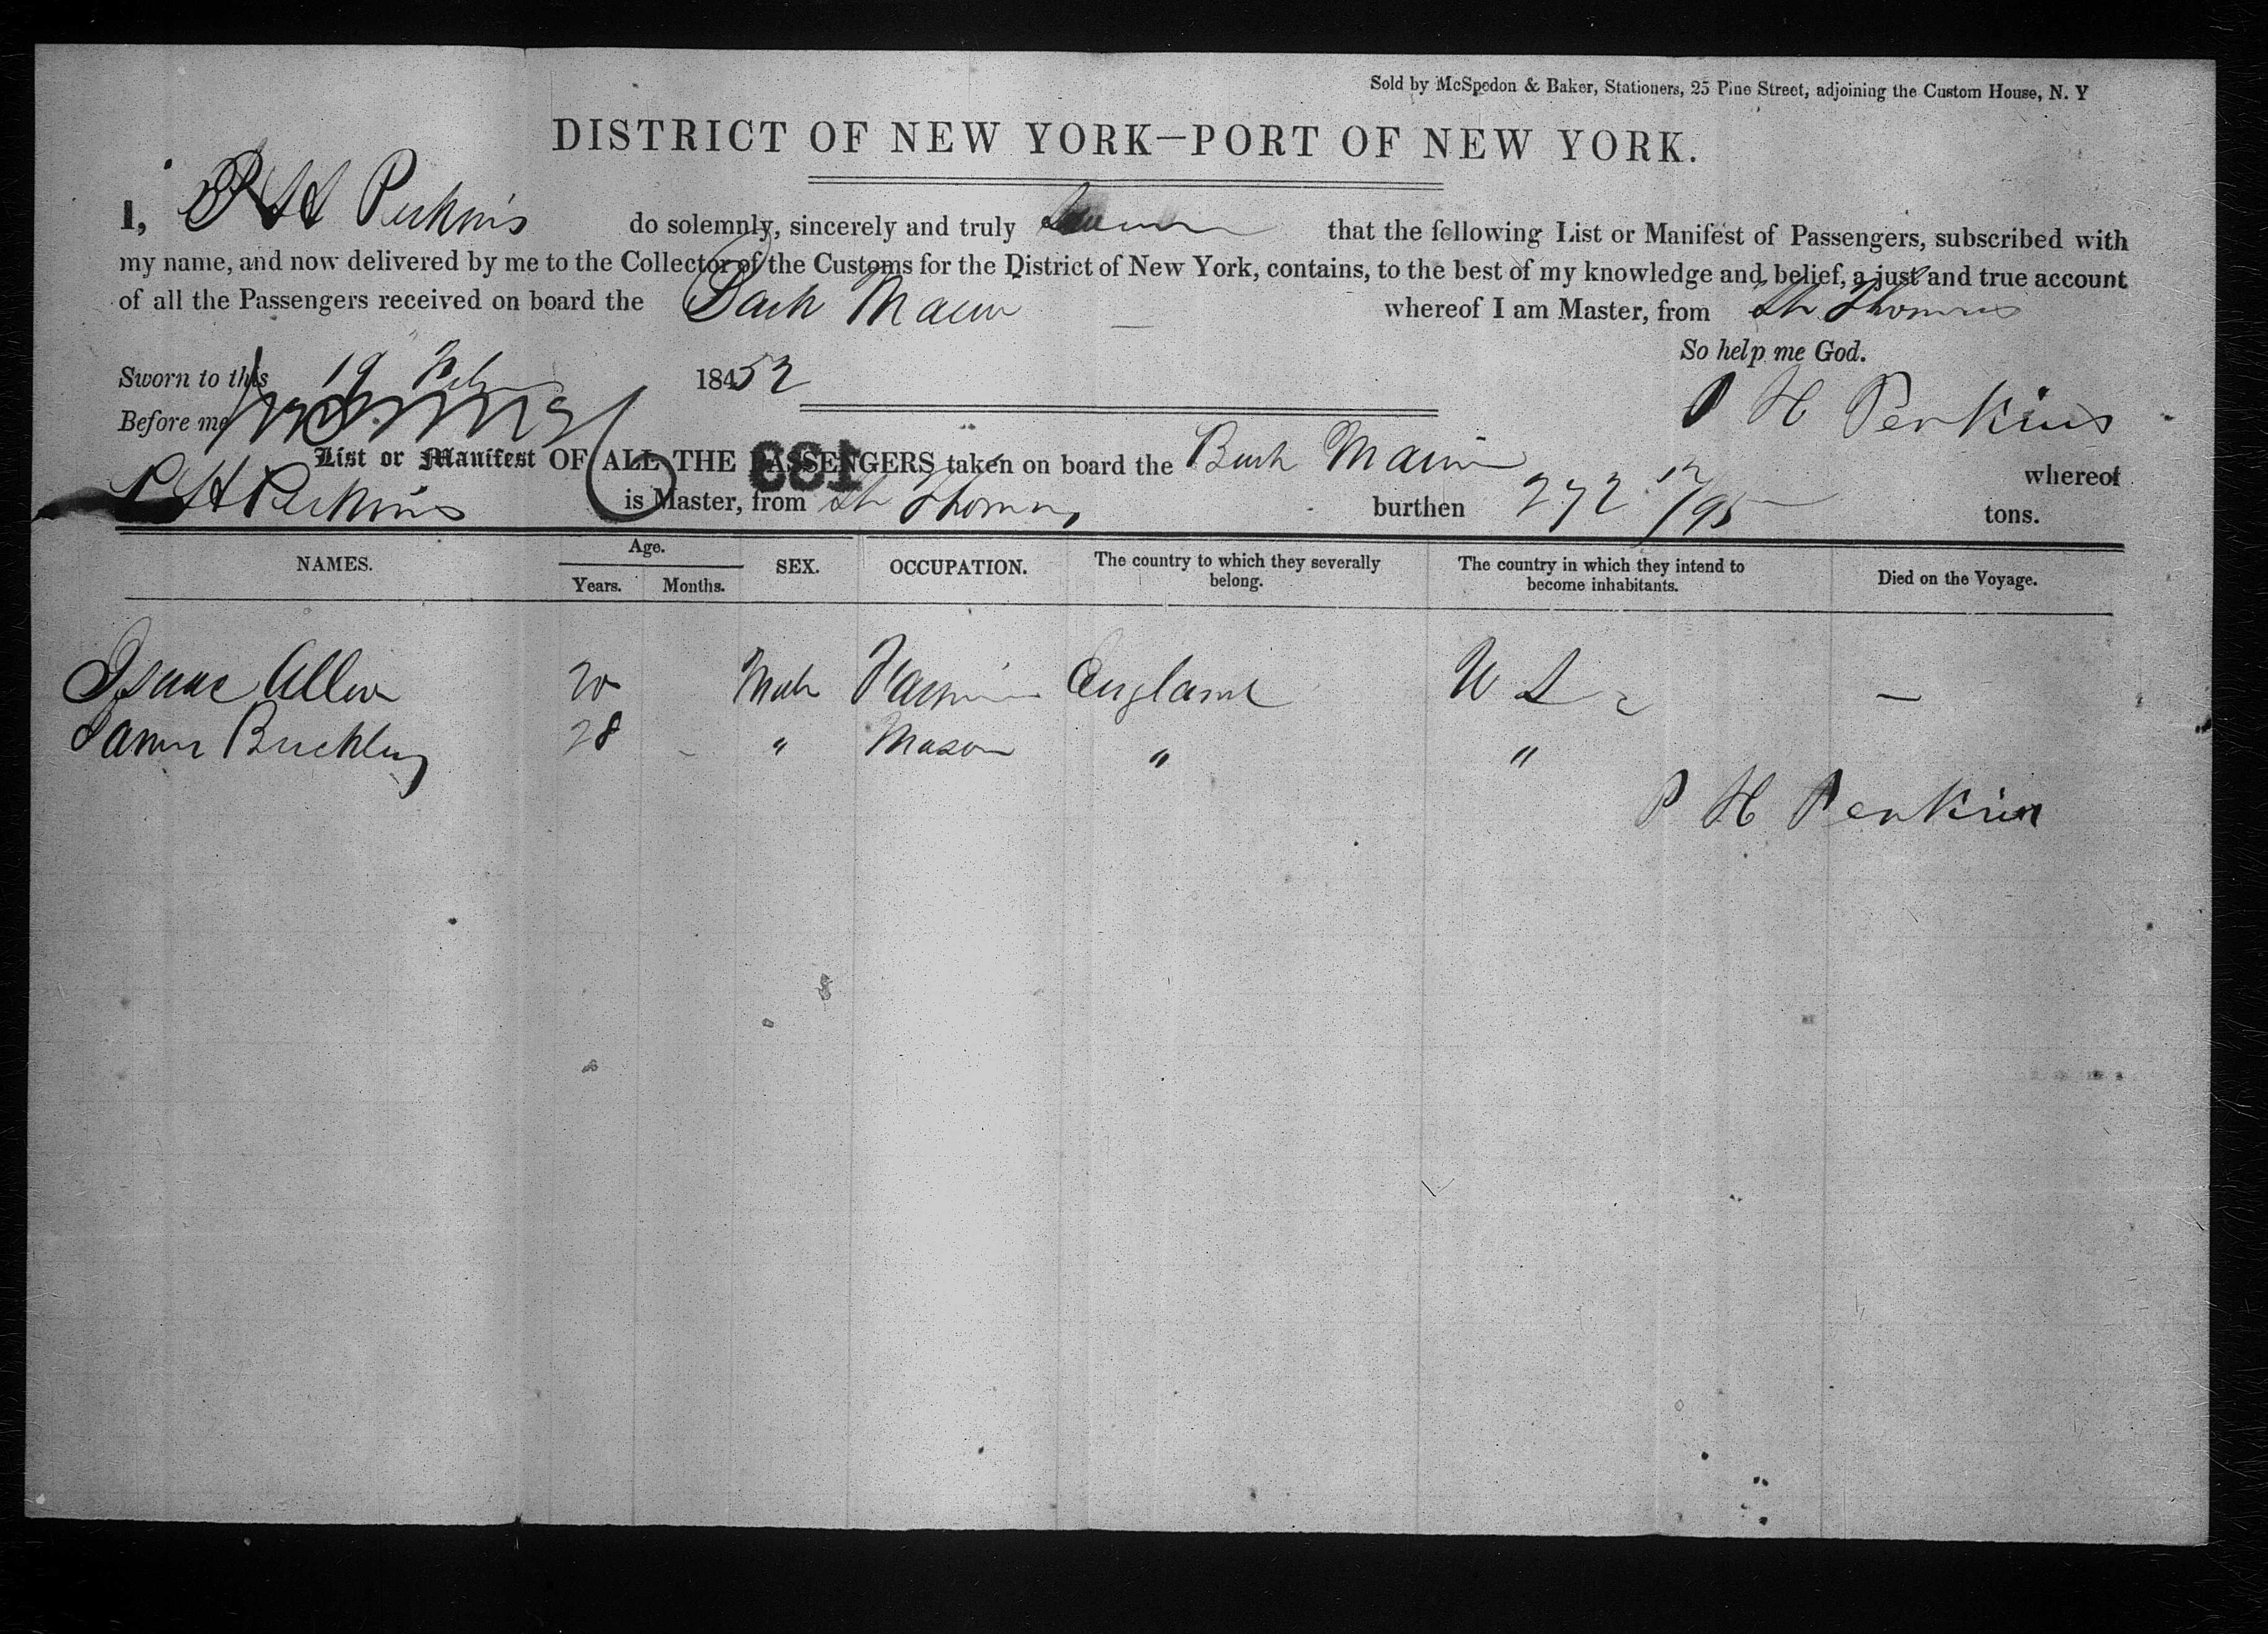 Sold by McSpedon & Baker, Stationers, 25 Pine Street, adjoining the Custom House, N. Y
DISTRICT OF NEW YORK—PORT OF NEW YORK.
I, P H Perkins do solemnly, sincerely and truly swear that the following List or Manifest of Passengers, subscribed with
my name, and now delivered by me to the Collector of the Customs for the District of New York, contains, to the best of my knowledge and belief, a just and true account
of all the Passengers received on board the Bark whereof I am Master, from St Thomas
So help me God.
Sworn to this 19 Feby 18452
Before me
P H Perkins
List or Manifest OF ALL THE PASSENGERS taken on board the Bark whereof
P H Perkins is Master, from St Thomas burthen 272 12/95 tons.
183
NAMES. Age. SEX. OCCUPATION. The country to which they severally belong. The country in which they intend to become inhabitants. Died on the Voyage.
Years. Months.
Isaac Allen 20 Male England U S —
James Buckley 28 - " Mason " "
P H Perkins